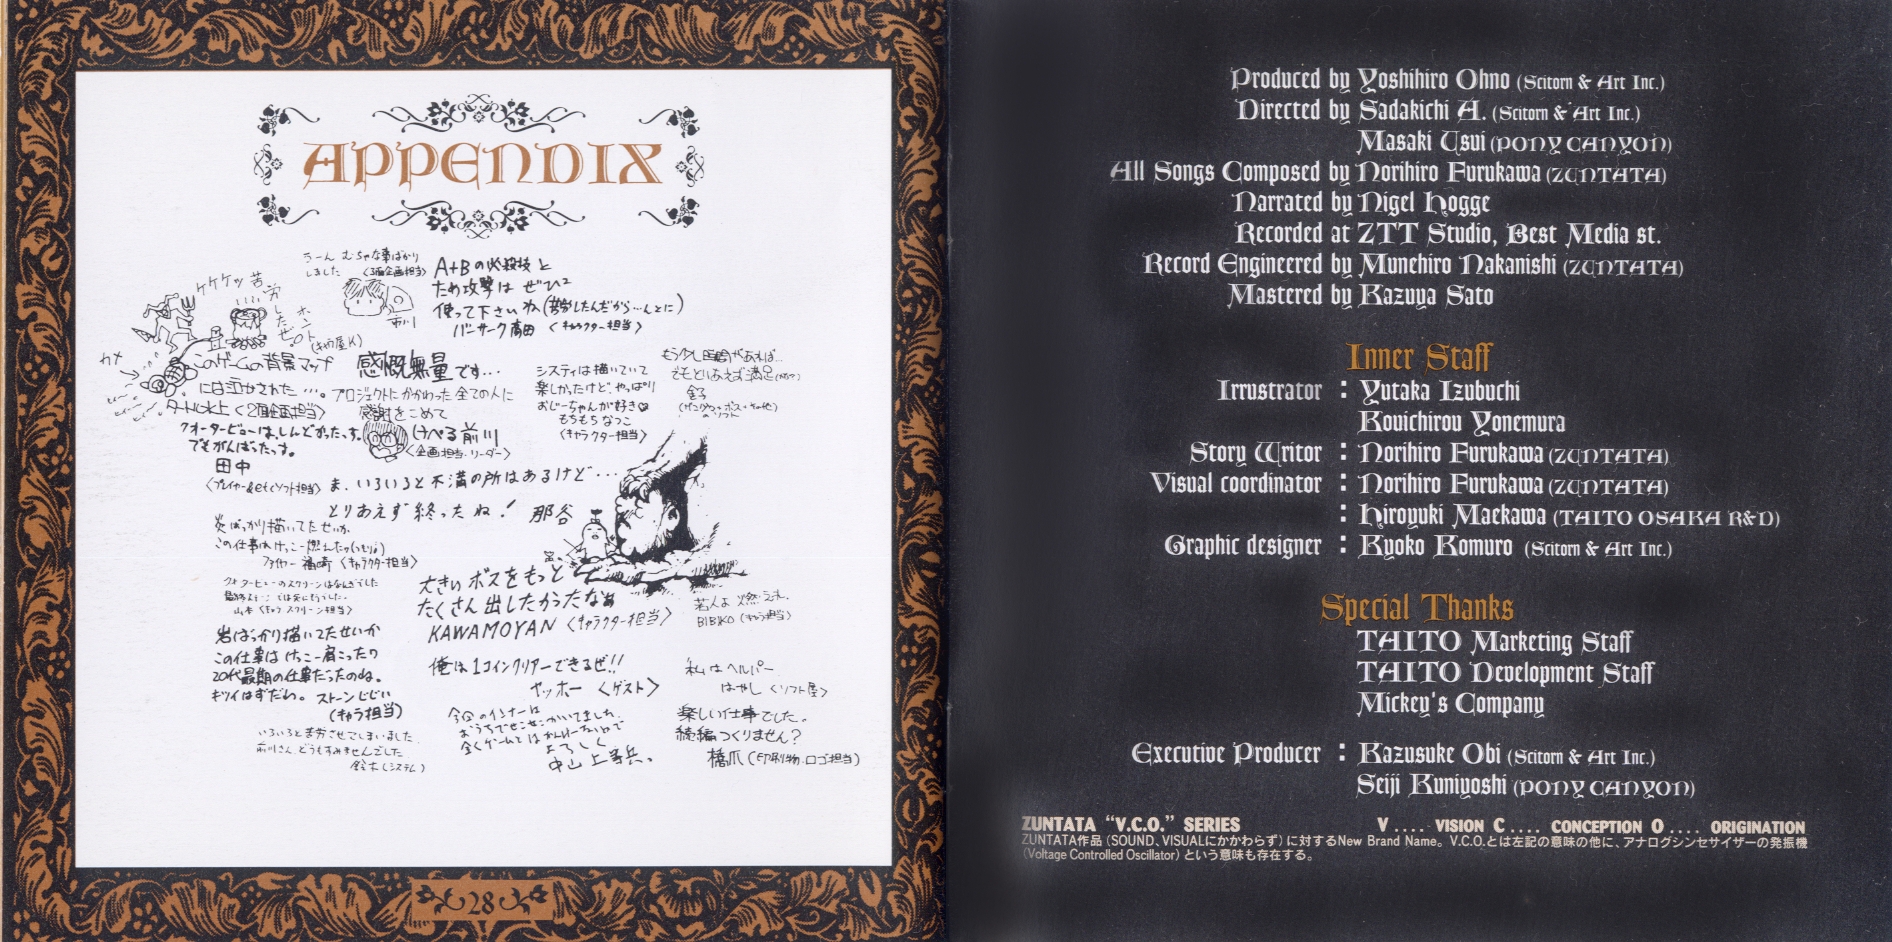 APPENDIX
うーん むちゃな事ばかり
しました 〈3面企画担当〉
市川
ケケケッ 苦労したぜ。ホント
(キャラ屋K)
A+Bの必殺技と
ため攻撃は ぜひ2
使って下さいね(苦労したんだから…んとに)
バーサーク高田 〈キャラクター担当〉
カメ
このゲームの背景マップ
には泣かされた …。
タートル水上〈2面企画担当〉
感慨無量です…
プロジェクトにかかわった全ての人に
感謝をこめて
けべる前川
〈企画担当・リーダー〉
システィは描いていて
楽しかったけど、やっぱり
おじーちゃんが好き
もちもちなつこ
〈キャラクター担当〉
もう少し時間があれば…
クオータービューは、しんどかったっす。
でもがんばったっす。
田中
〈プレイヤー&etcソフト担当〉
ま、いろいろと不満の所はあるけど…
とりあえず終ったね! 那谷
炎ばっかり描いてたせいか、
この仕事はけっこー燃えたっ(つもり)
ファイヤー福崎〈キャラクター担当〉
山本〈キャラ スクリーン担当〉
大きいボスをもっと
たくさん出したかったなぁ
KAWAMOYAN 〈キャラクター担当〉
若人よ 燃えれ。
BIBIKO〈キャラ担当〉
岩ばっかり描いてたせいか
この仕事はけっこー肩こったり
20代最期の仕事だったのね。
キツイはずだわ。 ストーンじじい
(キャラ担当)
俺は1コインクリアーできるぜ!!
ヤッホー 〈ゲスト〉
私はヘルパー
はやし〈ソフト屋〉
いろいろと苦労させてしまいました
前川さん、どうもすみませんでした
鈴木(システム)
今回のインナーは
おうちでせこせこかいてました。
よろしく
楽しい仕事でした。
続編つくりません?
橋爪(印刷物・ロゴ担当)
28
Produced by Yoshihiro Ohno (Scitorn & Art Inc.)
Directed by Sadakichi A. (Scitorn & Art Inc.)
Masaki Usui (PONY CANYON)
All Songs Composed by Norihiro Furukawa (ZUNTATA)
Narrated by Nigel Hogge
Recorded at ZTT Studio, Best Media st.
Record Engineered by Munehiro Nakanishi (ZUNTATA)
Mastered by Kazuya Sato
Inner Staff
Irrustrator : Yutaka Izubuchi
Kouichirou Yonemura
Story Writor : Norihiro Furukawa (ZUNTATA)
Visual coordinator : Norihiro Furukawa (ZUNTATA)
: Hiroyuki Maekawa (TAITO OSAKA R&D)
Graphic designer : Kyoko Komuro (Scitorn & Art Inc.)
Special Thanks
TAITO Marketing Staff
TAITO Development Staff
Mickey's Company
Executive Producer : Kazusuke Obi (Scitorn & Art Inc.)
Seiji Kuniyoshi (PONY CANYON)
ZUNTATA "V.C.O." SERIES V .... VISION C .... CONCEPTION O .... ORIGINATION
ZUNTATA作品(SOUND、VISUALにかかわらず)に対するNew Brand Name。V.C.O.とは左記の意味の他に、アナログシンセサイザーの発振機
(Voltage Controlled Oscillator)という意味も存在する。